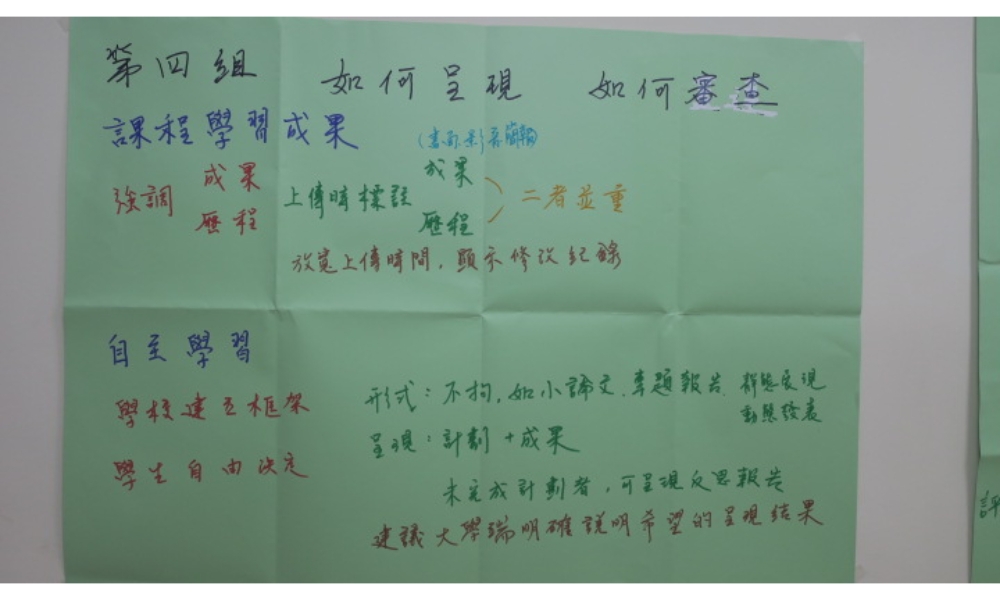 第四組 如何呈現 如何審查
課程學習成果 (書面.影音簡報)
強調 成果 上傳時標註 成果 二者並重
歷程 歷程
放寬上傳時間,顯示修改紀錄
自主學習
學校建立框架 形式:不拘,如小論文.專題報告.靜態展現
動態發表
呈現:計劃+成果
學生自由決定
未完成計劃者,可呈現反思報告
建議大學端明確說明希望的呈現結果
評